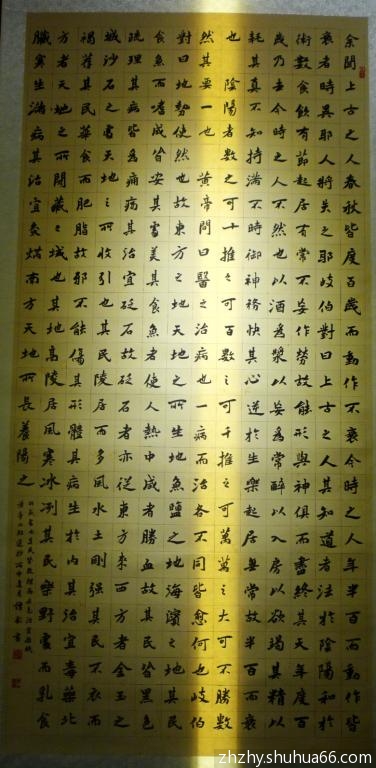 余聞上古之人春秋皆度百歲而動作不衰今時之人年半百而動作皆
衰者時異耶人將失之耶岐伯對曰上古之人其知道者法於陰陽和於
術數食飲有節起居有常不妄作勞故能形與神俱而盡終其天年度百
歲乃去今時之人不然也以酒為漿以妄為常醉以入房以欲竭其精以
耗其真不知持滿不時御神務快其心逆於生樂起居無常故半百而衰
也陰陽者數之可十推之可百數之可千推之可萬萬之大可不勝數
然其要一也黃帝問曰醫之治病也一病而治各不同皆愈何也岐伯
對曰地勢使然也故東方之地天地之所生地魚鹽之地海濱之地其民
食魚而嗜咸皆安其處美其食魚者使人熱中咸者勝血故其民皆黑色
疏理其病皆為瘍其治宜砭石故砭石者亦從東方來西方者金玉之
域沙石之處天地之所收引也其民陵居而多風水土剛強其民不衣而
褐薦其民華食而肥脂故邪不能傷其形體其病生於內其治宜毒藥北
方者天地之所閉藏之域也其地高陵居風寒冰冽其民樂野處而乳食
臟寒生滿病其治宜灸焫南方天地所長養陽之
zhzhy.shuhua66.com